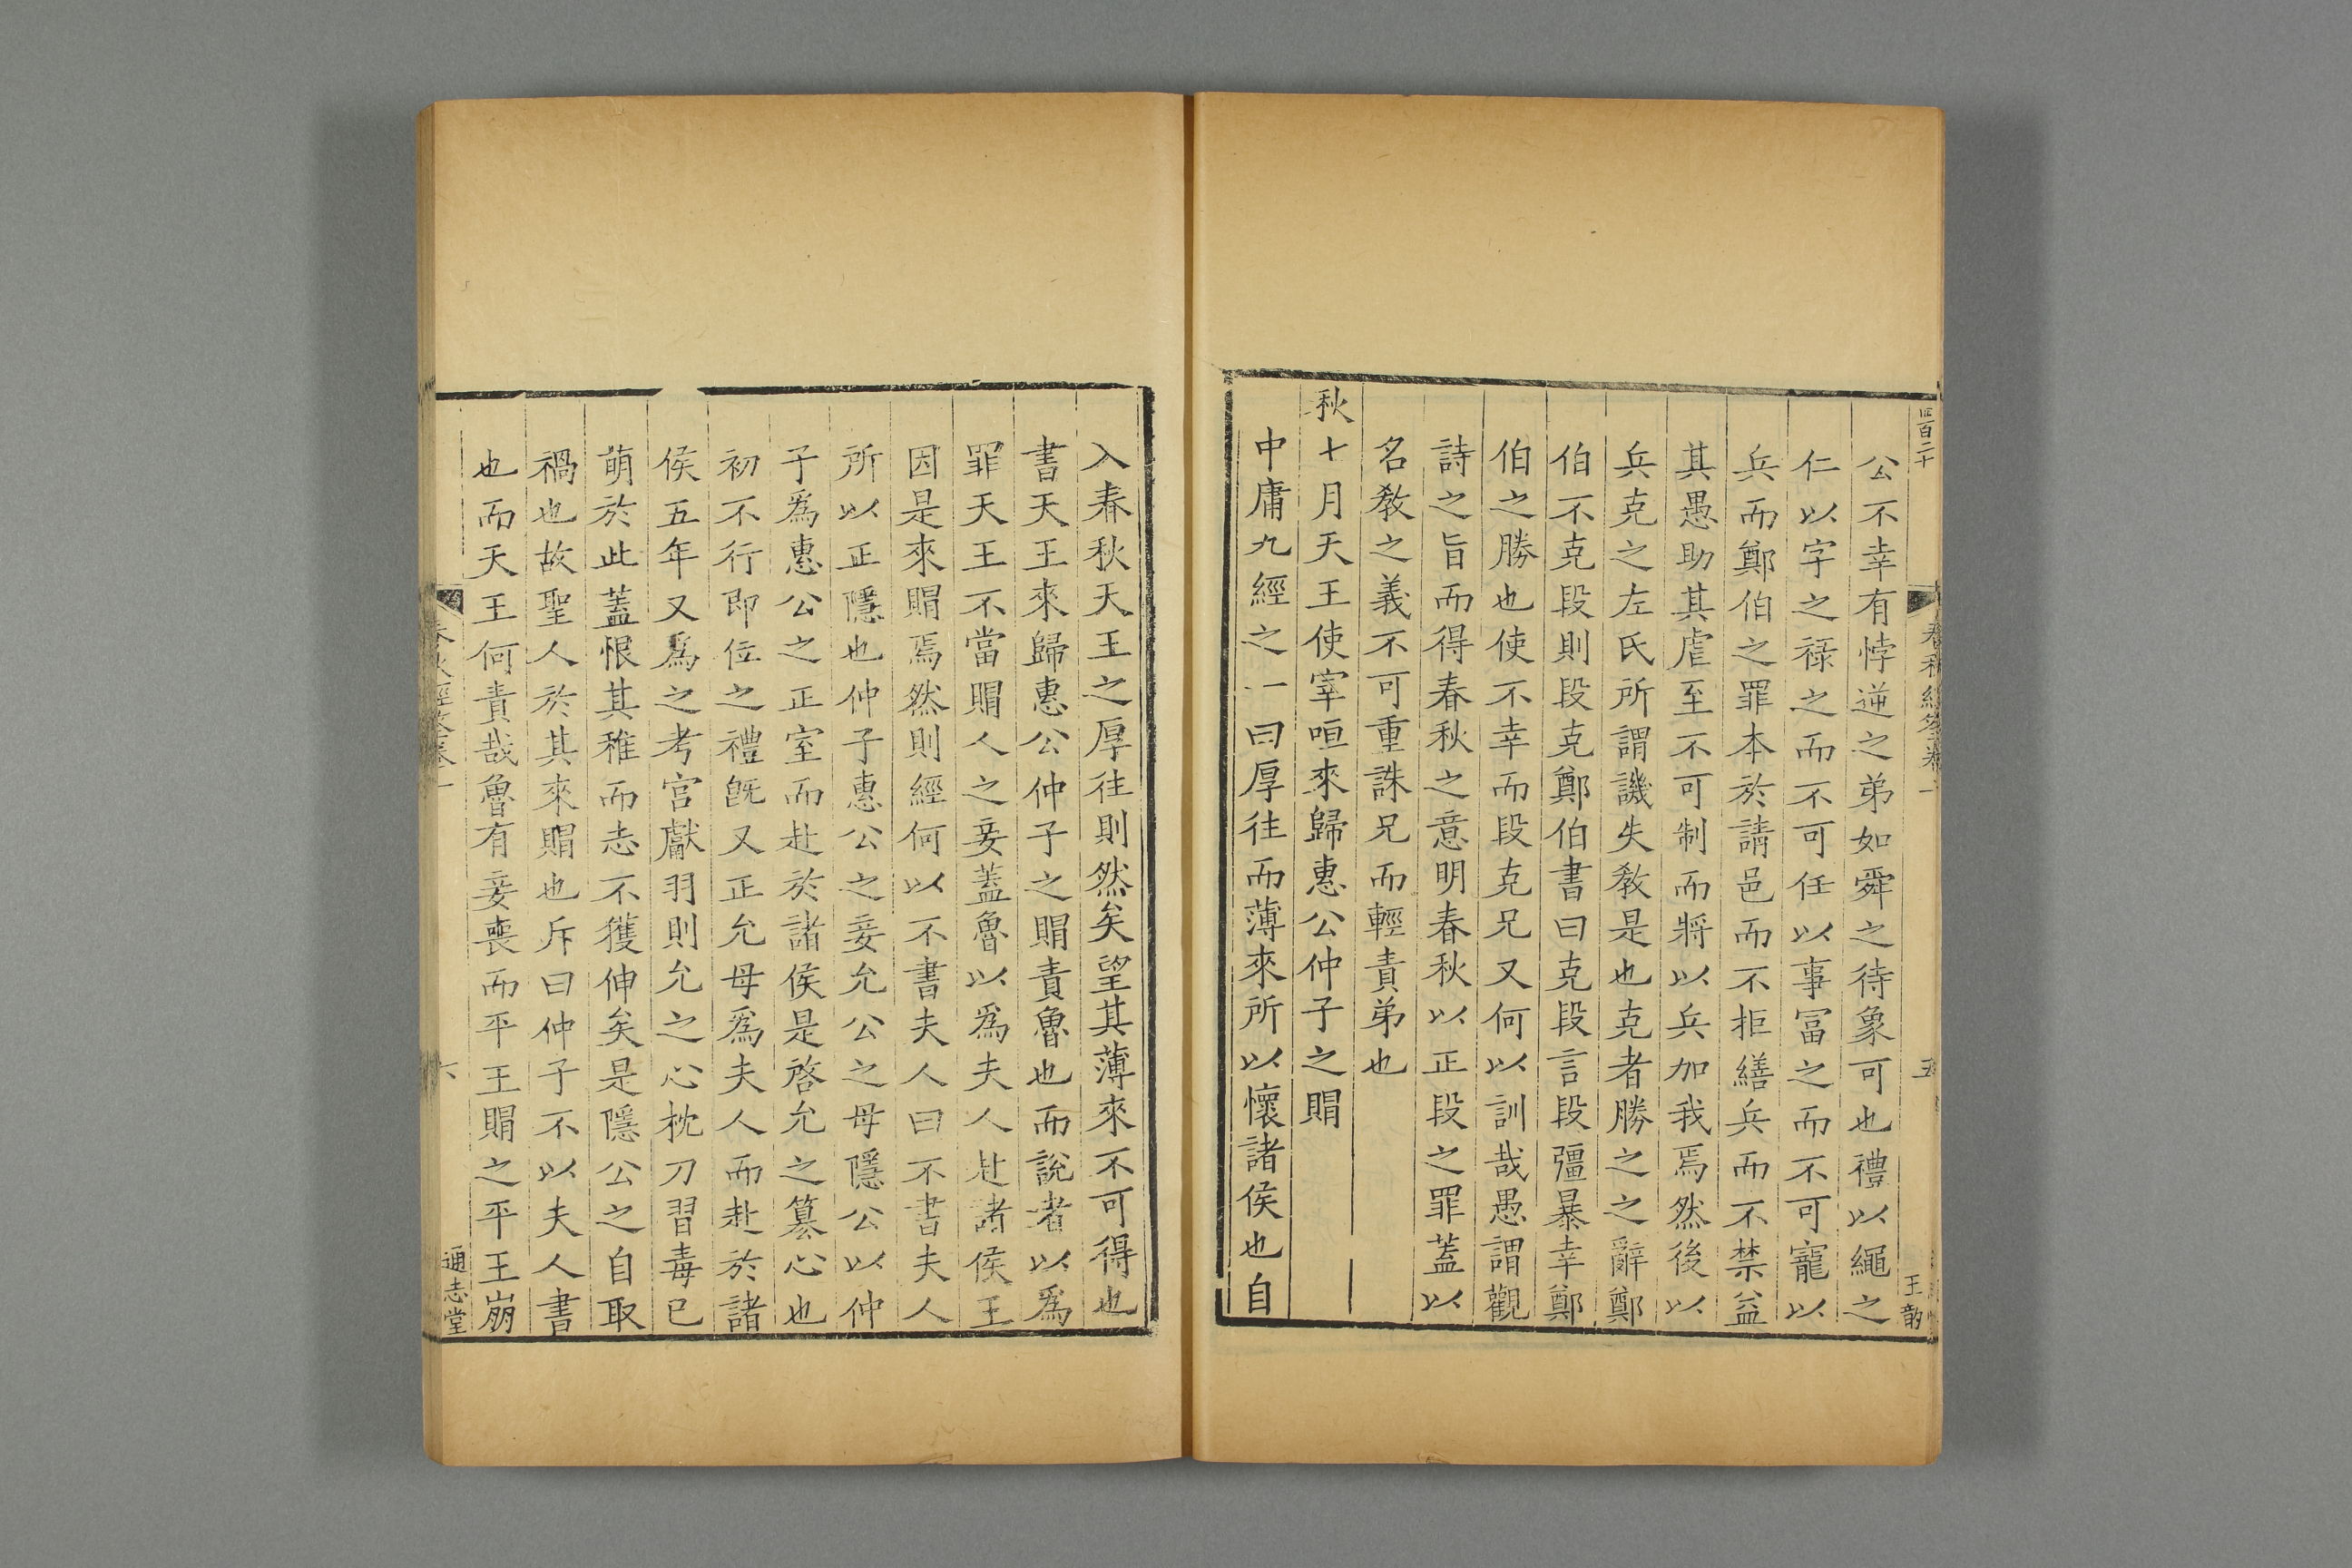 四百二十
五
王
公不幸有悖逆之弟如舜之待象可也禮以繩之
仁以字之祿之而不可任以事冨之而不可寵以
兵而鄭伯之罪本於請邑而不拒繕兵而不禁益
其愚助其虐至不可制而將以兵加我焉然後以
兵克之左氏所謂譏失教是也克者勝之之辭鄭
伯不克段則段克鄭伯書曰克段言段彊暴幸鄭
伯之勝也使不幸而段克兄又何以訓哉愚謂觀
詩之旨而得春秋之意明春秋以正段之罪蓋以
名教之義不可重誅兄而輕責弟也
秋七月天王使宰咺來歸惠公仲子之賵
中庸九經之一曰厚往而薄來所以懷諸侯也自
入春秋天王之厚往則然矣望其薄來不可得也
書天王來歸惠公仲子之賵責魯也而說者以爲
罪天王不當賵人之妾蓋魯以爲夫人赴諸侯王
因是來賵焉然則經何以不書夫人曰不書夫人
所以正隱也仲子惠公之妾允公之母隱公以仲
子爲惠公之正室而赴於諸侯是啓允之簒心也
初不行即位之禮旣又正允母爲夫人而赴於諸
侯五年又爲之考宮獻羽則允之心枕刀習毒已
萌於此蓋恨其稚而志不獲伸矣是隱公之自取
禍也故聖人於其來賵也斥曰仲子不以夫人書
也而天王何責哉魯有妾喪而平王賵之平王崩
六
通志堂